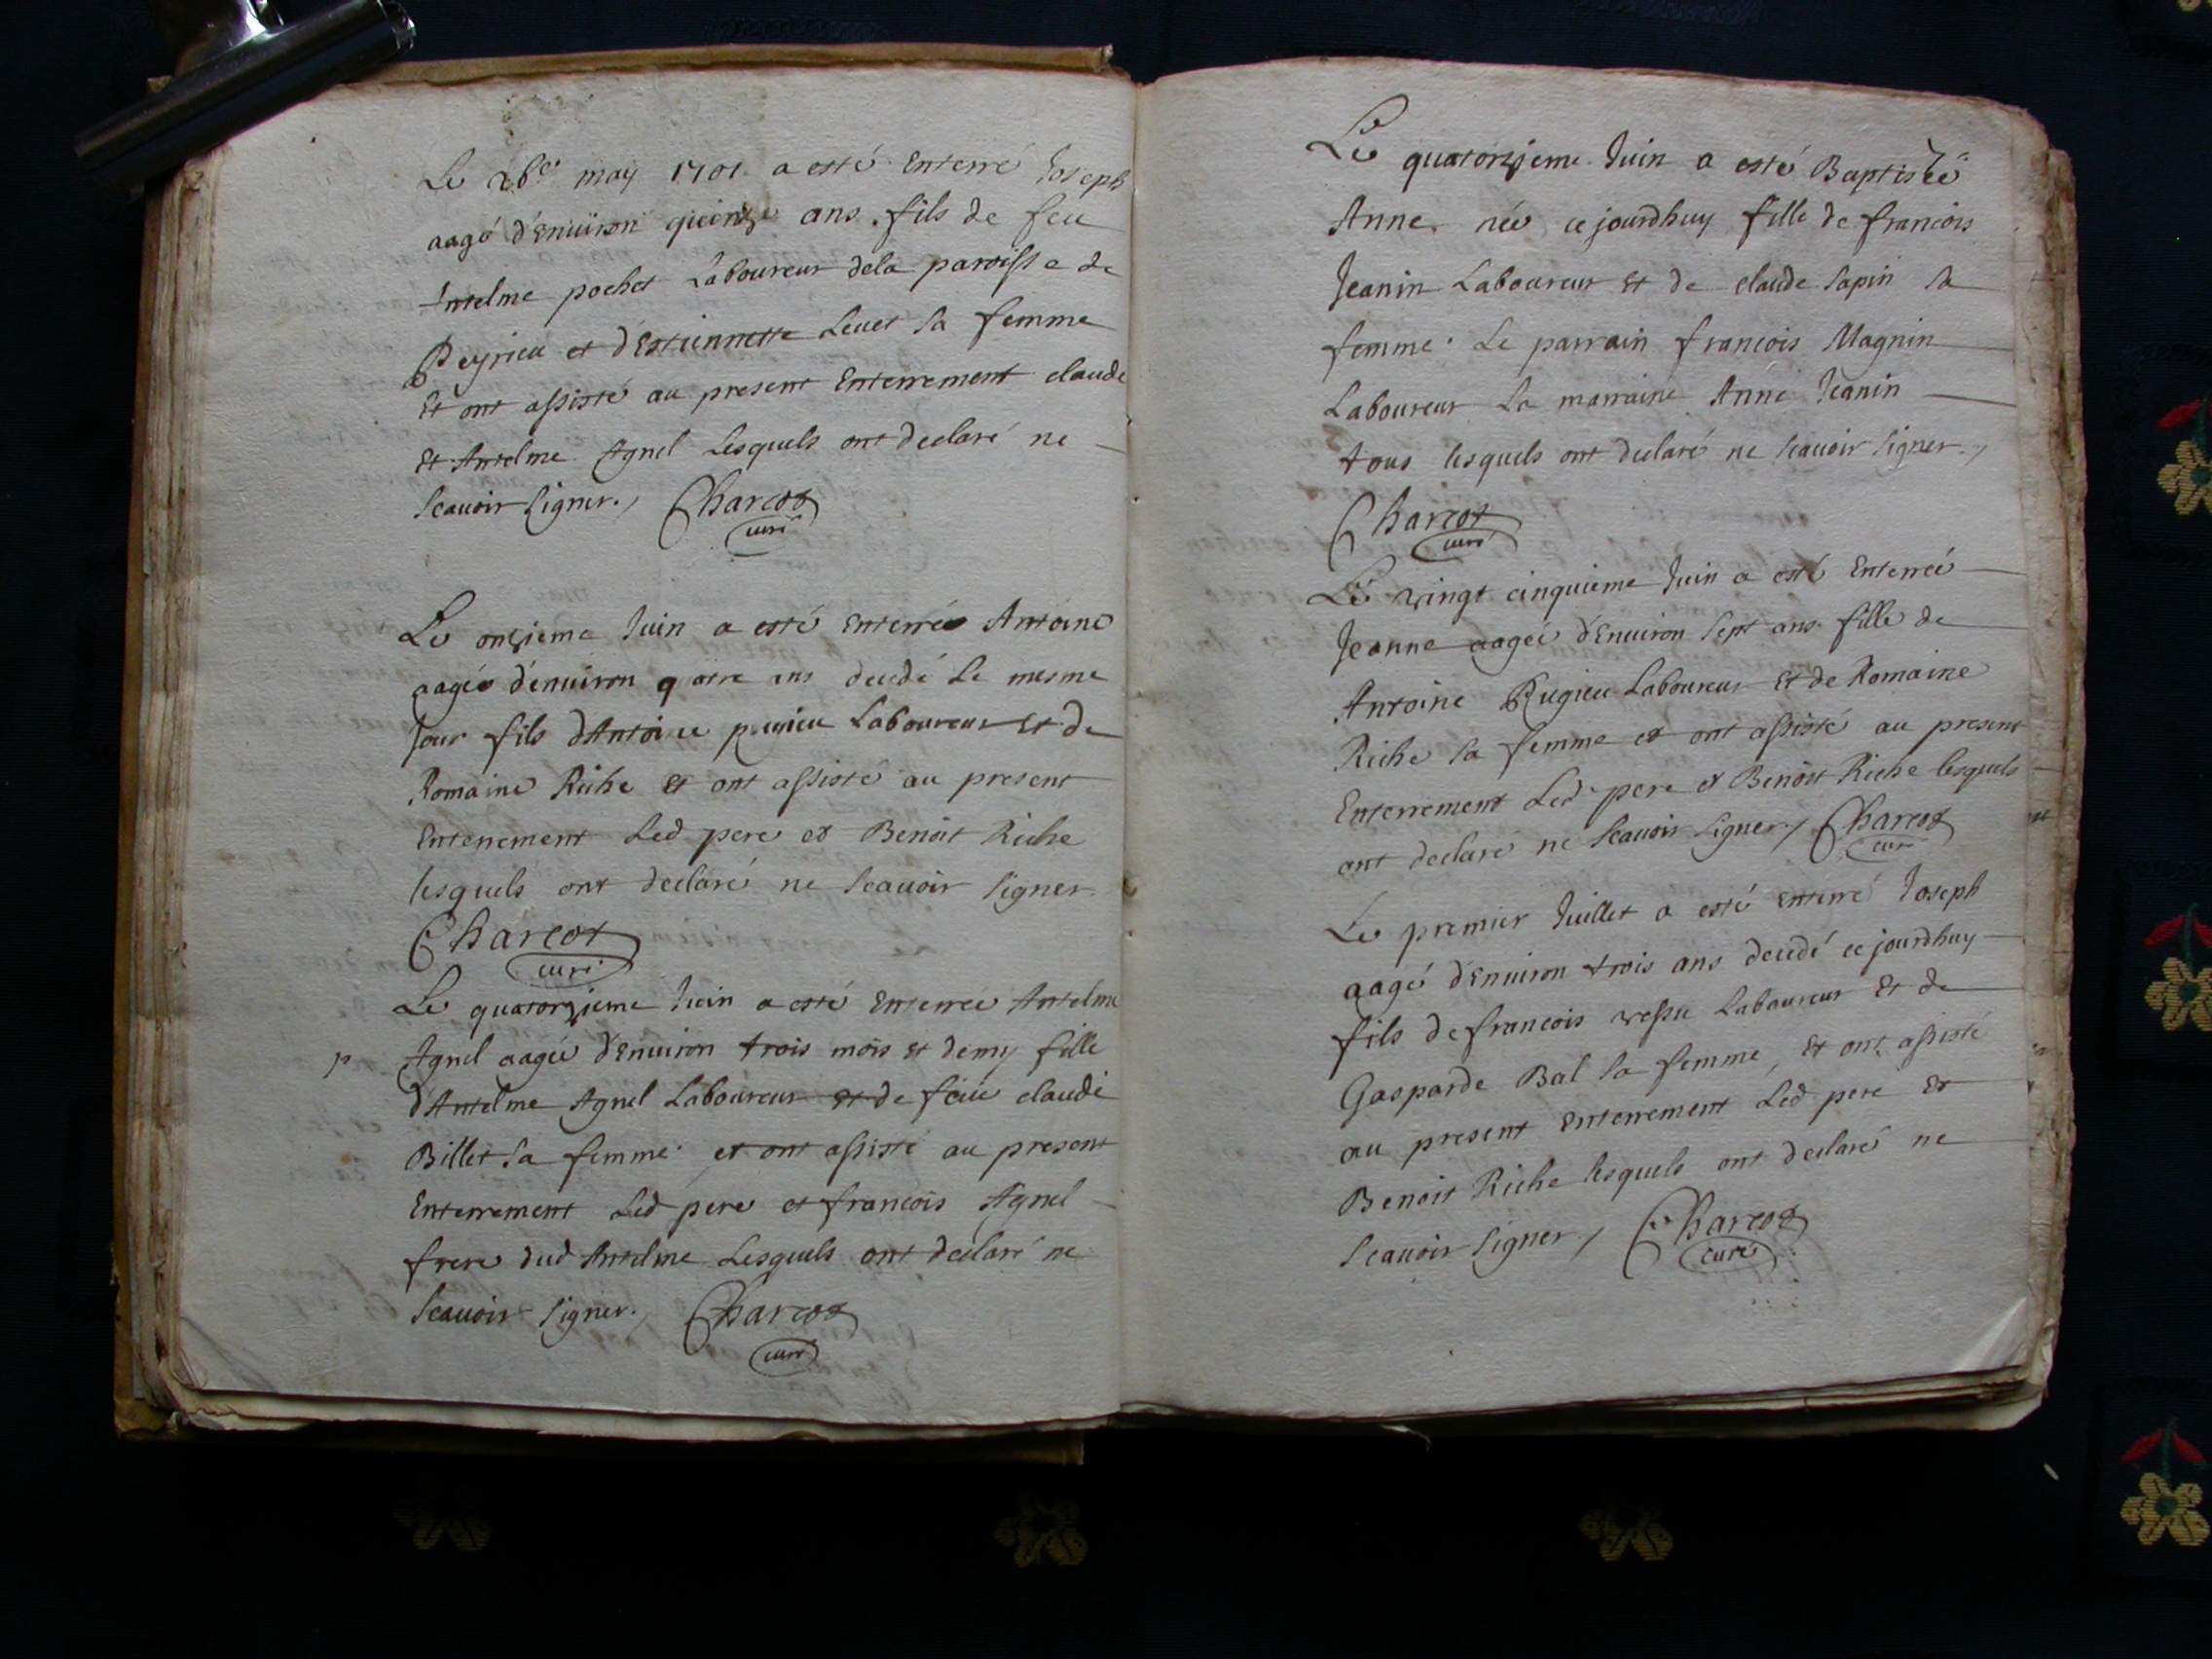 Le 26e. may 1701 a esté Enterré Joseph
aagé d'Enuiron quinze ans fils de feu
Antelme pochet Laboureur dela paroisse de
Peyrieu et d'Estiennette Leuet sa femme
Et ont assisté au present Enterrement claude
Et Antelme Agnel Lesquels ont declaré ne
scauoir signer./ Charcot
curé
Le onzieme Juin a esté enterré Antoine
aagé d'enuiron quatre ans decedé Le mesme
Jour fils d'Antoine Laboureur Et de
Romaine Riche Et ont assisté au present
Enterrement Led pere et Benoit Riche
lesquels ont declaré ne scauoir signer
Charcot
curé
Le quatorzieme Juin a esté Enterrée Antelme
p Agnel aagée d'Enuiron trois mois et demy fille
d'Antelme Agnel Laboureur et de feüe claude
Billet sa femme et ont assisté au present
Enterrement Led pere et francois Agnel
frere dud Antelme Lesquels ont declaré ne
scauoir signer./ Charcot
curé
Le quatorzieme Juin a esté Baptisée
Anne née ce jourdhuy fille de francois
Jeanin Laboureur et de claude sapin sa
femme Le parrain francois Magnin
Laboureur La marraine Anne Jeanin
tous lesquels ont declaré ne scauoir signer./
Charcot
curé
Le vingt cinquieme Juin a esté Enterrée
Jeanne aagée d'Enuiron sept ans fille de
Antoine Pugieu Laboureur Et de Romaine
Riche sa femme et ont assisté au present
Enterrement Led pere et Benoit Riche lesquels
ont declaré ne scauoir signer./ Charcot
curé
Le premier Juillet a esté enterré Joseph
aagé d'enuiron trois ans decedé ce jourdhuy
fils de francois vessu Laboureur Et de
Gasparde Bal sa femme, Et ont assisté
au present enterrement Led pere Et
Benoit Riche lesquels ont declaré ne
scauoir signer./ Charcot
curé